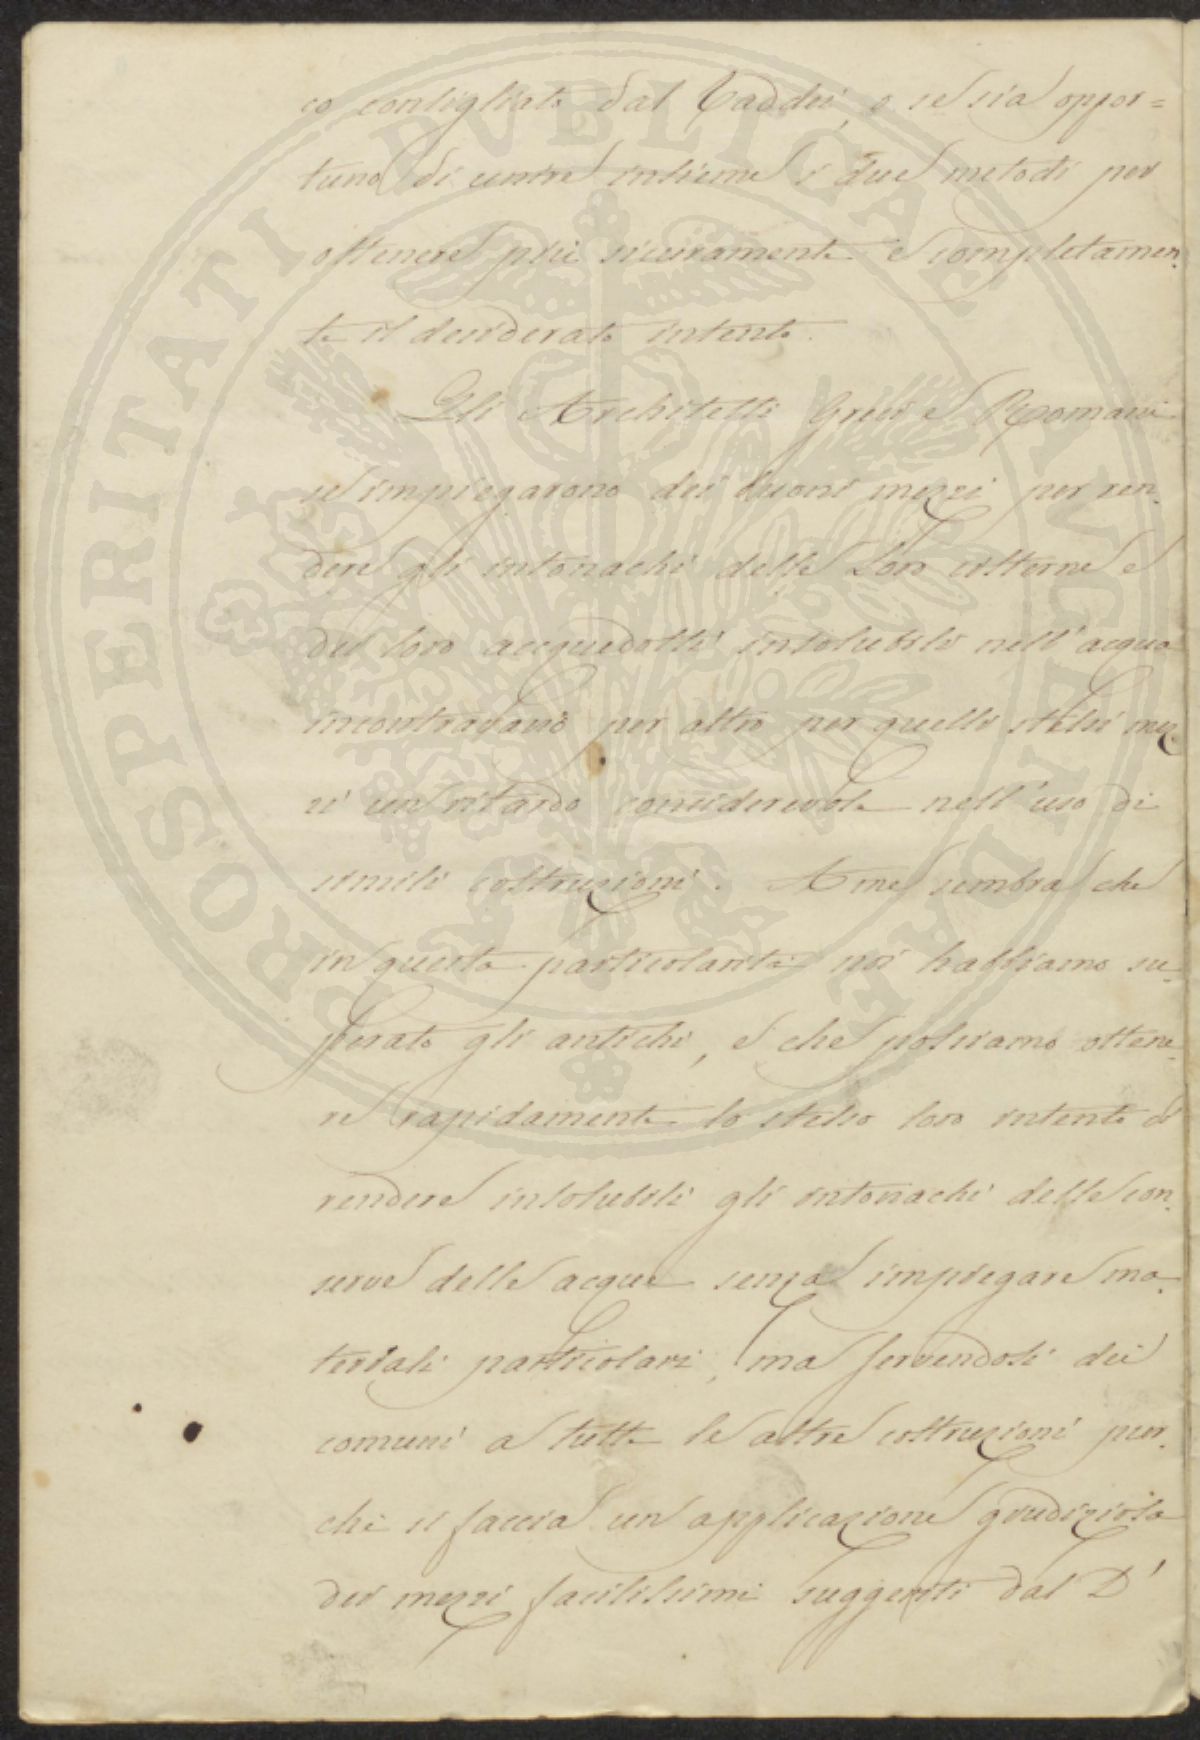 co consigliato dal Taddei, o se sia oppor=
tuno di unire insieme i due metodi per
ottenere più sicuramente e completamen-
te il desiderato intento.
Gli Architetti Greci e Romani
se impiegarono dei buoni mezzi per ren-
dere gli intonachi delle Loro cisterne e
dei loro acquedotti insolubili nell'acqua
incontravano per altro per quelli stessi mez
zi un ritardo considerevole nell'uso di
simili costruzioni. A me sembra che
in questa particolarità noi habbiamo su-
perato gli antichi, e che possiamo ottene-
re rapidamente lo stesso loro intento di
rendere insolubili gli intonachi delle con-
serve delle acque senza impiegare ma-
teriali particolari, ma servendosi dei
comuni a tutte le altre costruzioni pur-
chè si faccia un'applicazione giudiziosa
dei mezzi facilissimi suggeriti dal D'
PROSPERITATI PVBLICAE AVGENDAE